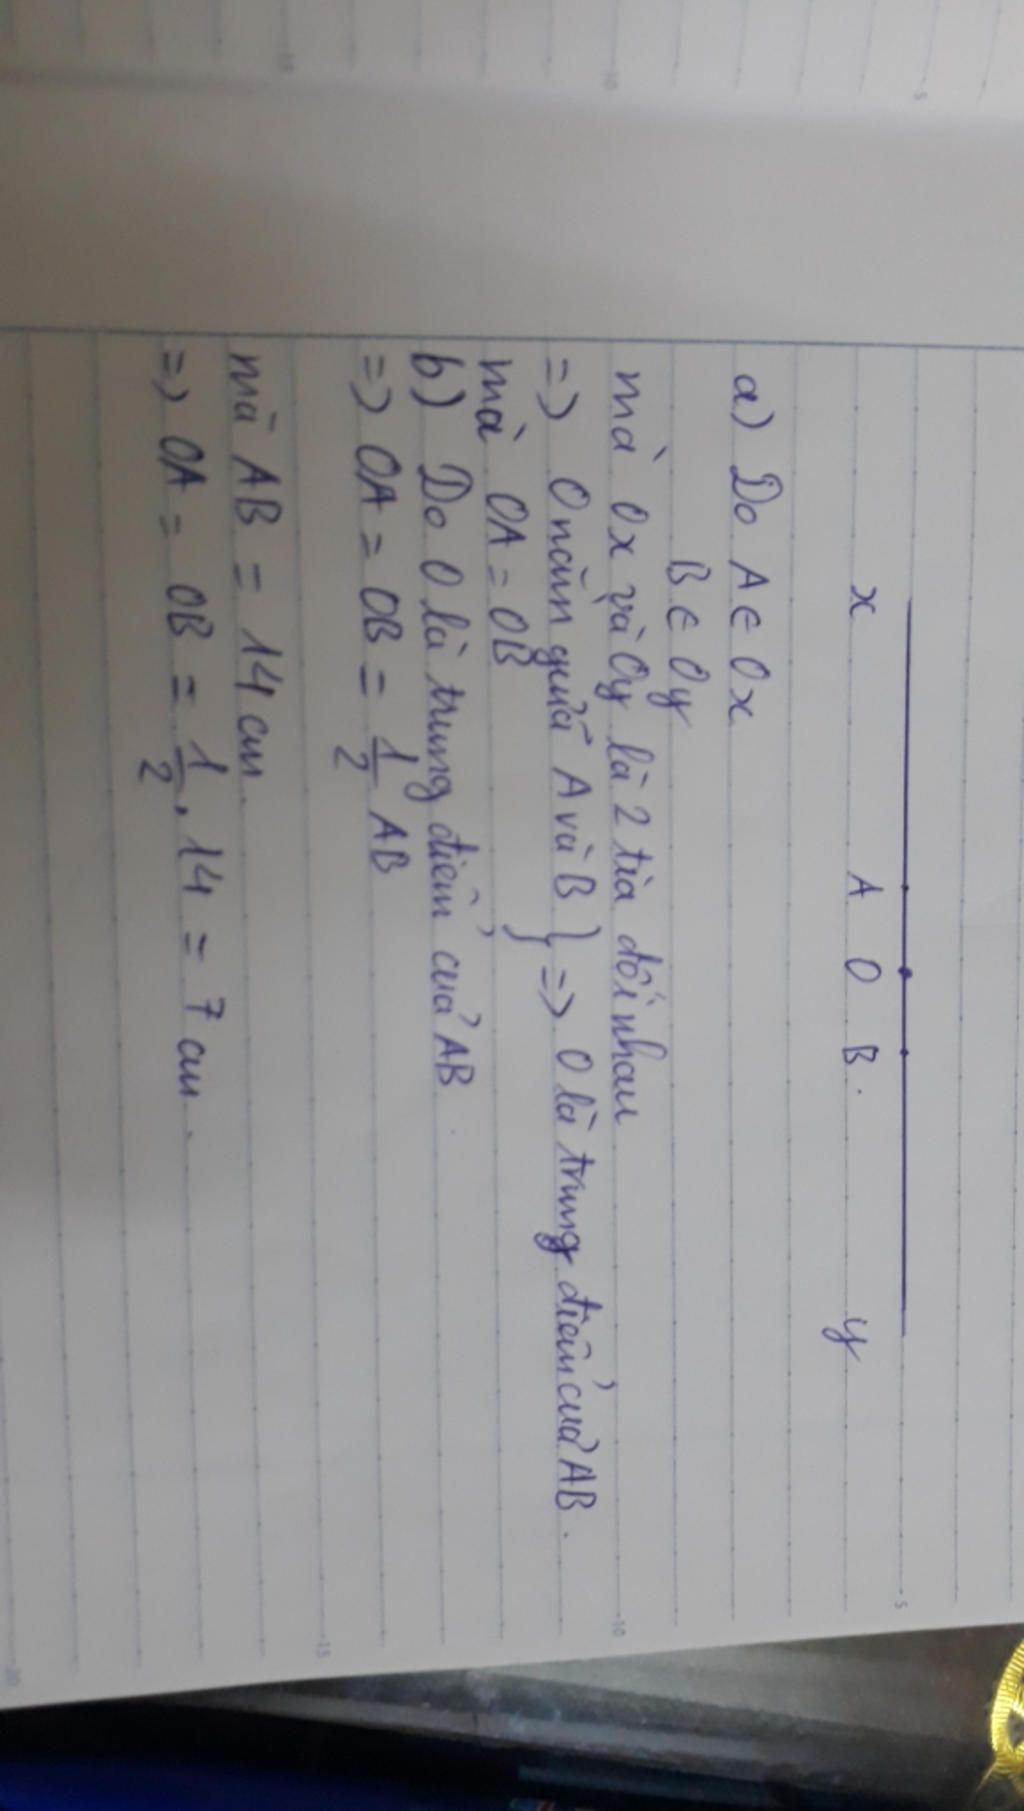 x A O B. y
a) Do A ∈ Ox
B ∈ Oy
mà Ox và Oy là 2 tia đối nhau
=> O nằm giữa A và B } => O là trung điểm của AB.
mà OA = OB
b) Do O là trung điểm của AB.
=> OA = OB = 1/2 AB
mà AB = 14 cm.
=> OA = OB = 1/2 . 14 = 7 cm.